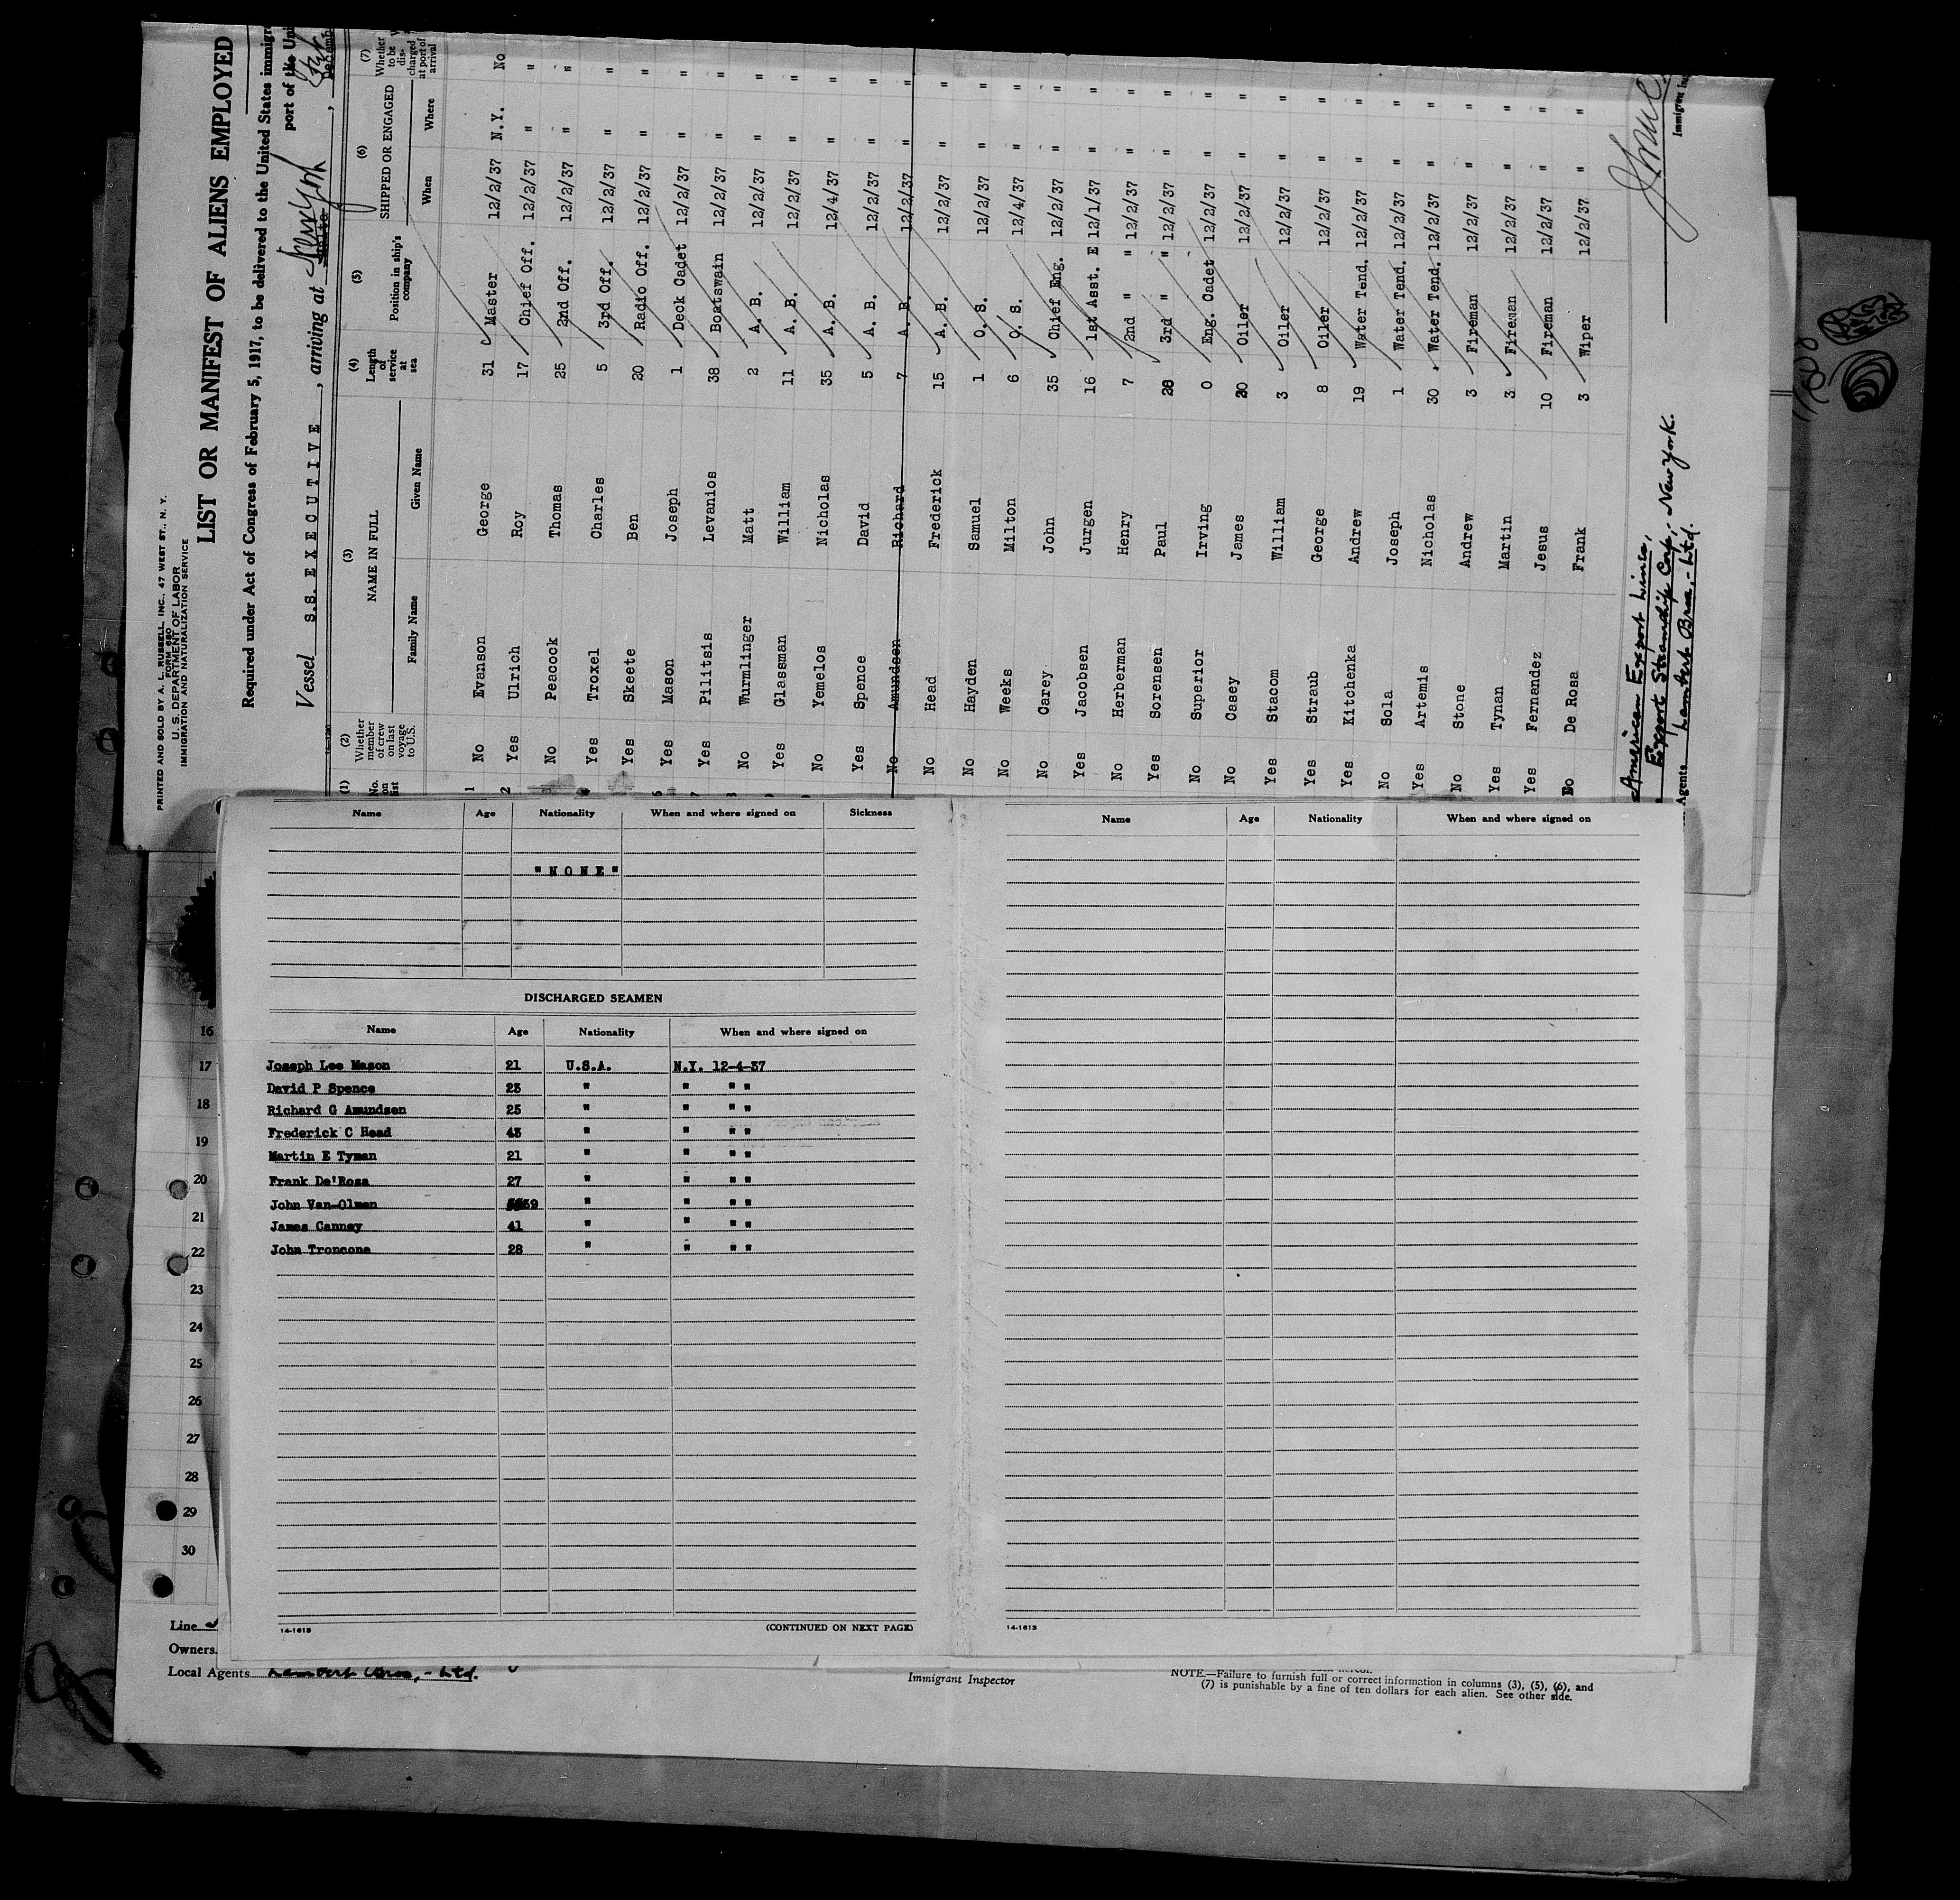 PRINTED AND SOLD BY A. L. RUSSELL, INC., 47 WEST ST., N. Y.
FORM 680
U. S. DEPARTMENT OF LABOR
IMMIGRATION AND NATURALIZATION SERVICE
LIST OR MANIFEST OF ALIENS EMPLOYED
Required under Act of Congress of February 5, 1917, to be delivered to the United States immigr
port of the Uni
Vessel S.S. EXECUTIVE , arriving at ,
(1) No. on list (2) Whether member of crew on last voyage to U.S. (3) NAME IN FULL Family Name Given Name (4) Length of service at sea (5) Position in ship's company (6) SHIPPED OR ENGAGED When Where (7) Whether to be discharged at port of arrival
1 No Evanson George 31 Master 12/2/37 N.Y. No
2 Yes Ulrich Roy 17 Chief Off. 12/2/37 " "
No Peacock Thomas 25 2nd Off. 12/2/37 " "
Yes Troxel Charles 5 3rd Off. 12/2/37 " "
Yes Skeete Ben 20 Radio Off. 12/2/37 " "
6 Yes Mason Joseph 1 Deck Cadet 12/2/37 " "
7 Yes Pilitsis Levanios 38 Boatswain 12/2/37 " "
No Wurmlinger Matt 2 A. B. 12/2/37 " "
Yes Glassman William 11 A. B. 12/2/37 " "
No Yemelos Nicholas 35 A. B. 12/4/37 " "
Yes Spence David 5 A. B. 12/2/37 " "
No Amundsen Richard 7 A. B. 12/2/37 " "
No Head Frederick 15 A. B. 12/2/37 " "
No Hayden Samuel 1 O. S. 12/2/37 " "
No Weeks Milton 6 O. S. 12/4/37 " "
No Carey John 35 Chief Eng. 12/2/37 " "
Yes Jacobsen Jurgen 16 1st Asst. E 12/1/37 " "
No Herberman Henry 7 2nd " " 12/2/37 " "
Yes Sorensen Paul 28 3rd " " 12/2/37 " "
No Superior Irving 0 Eng. Cadet 12/2/37 " "
No Casey James 20 Oiler 12/2/37 " "
Yes Stacom William 3 Oiler 12/2/37 " "
Yes Straub George 8 Oiler 12/2/37 " "
Yes Kitchenka Andrew 19 Water Tend. 12/2/37 " "
No Sola Joseph 1 Water Tend. 12/2/37 " "
Yes Artemis Nicholas 30 Water Tend. 12/2/37 " "
No Stone Andrew 3 Fireman 12/2/37 " "
Yes Tynan Martin 3 Fireman 12/2/37 " "
Yes Fernandez Jesus 10 Fireman 12/2/37 " "
No De Rosa Frank 3 Wiper 12/2/37 " "
American Export Lines,
Export Steamship Corp, - New York.
Agents Lambert Bros, - Ltd.
Immigrant In
Name Age Nationality When and where signed on Sickness
"NONE"
DISCHARGED SEAMEN
Name Age Nationality When and where signed on
Joseph Lee Mason 21 U.S.A. N.Y. 12-4-37
David P Spence 23 " " " "
Richard G Amundsen 25 " " " "
Frederick C Head 43 " " " "
Martin E Tyman 21 " " " "
Frank De'Rosa 27 " " " "
John Van-Olman 39 " " " "
James Canney 41 " " " "
John Troncone 28 " " " "
14-1613
(CONTINUED ON NEXT PAGE)
Name Age Nationality When and where signed on
14-1613
16
17
18
19
20
21
22
23
24
25
26
27
28
29
30
Line
Owners
Local Agents Lambert Bros, - Ltd.
Immigrant Inspector
NOTE.—Failure to furnish full or correct information in columns (3), (5), (6), and
(7) is punishable by a fine of ten dollars for each alien. See other side.